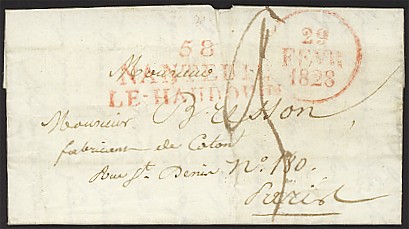 58
NANTEUIL
LE-HAUDOUIN
29
FEVR
1828
Monsieur
Monsieur Besson
fabricant de Coton
Rue St. Denis No. 180.
Paris